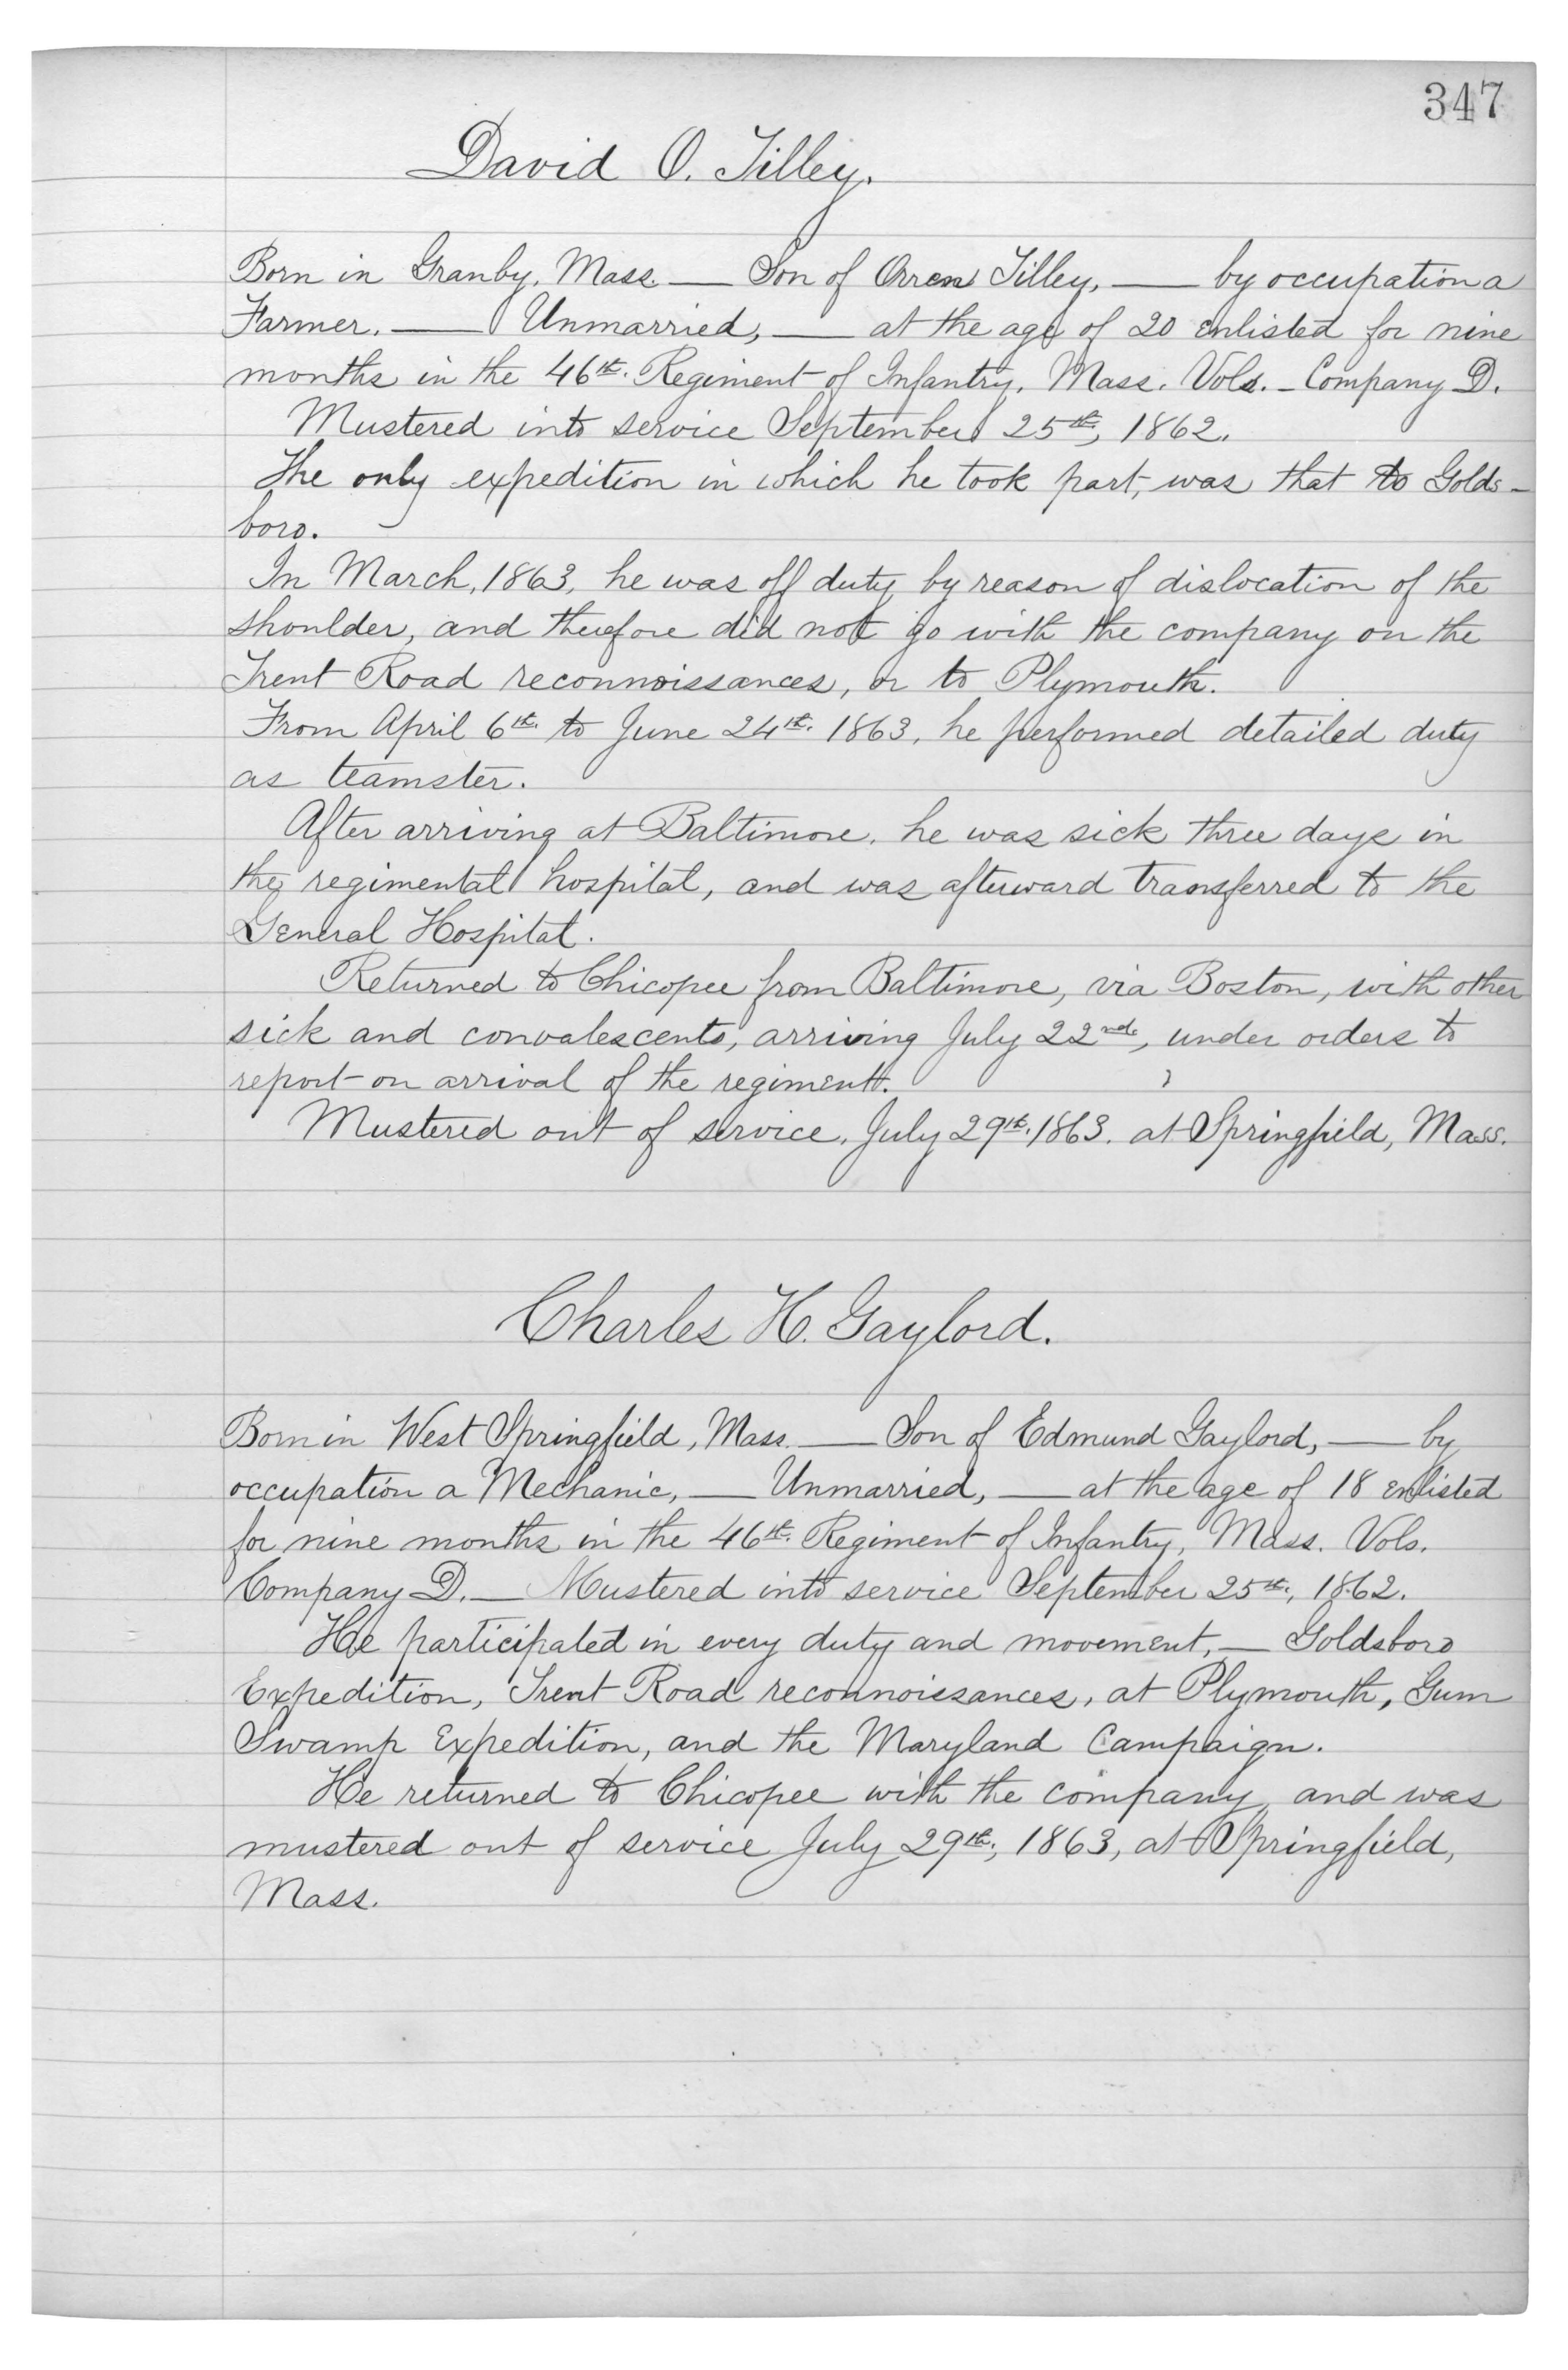 347
David O. Tilley.
Born in Granby, Mass. — Son of Orren Tilley, — by occupation a
Farmer. — Unmarried, — at the age of 20 enlisted for nine
months in the 46th. Regiment of Infantry, Mass. Vols. - Company D.
Mustered into service September 25th, 1862.
The only expedition in which he took part, was that to Golds-
boro.
In March, 1863, he was off duty by reason of dislocation of the
shoulder, and therefore did not go with the company on the
Trent Road reconnoissances, or to Plymouth.
From April 6th. to June 24th. 1863, he performed detailed duty
as teamster.
After arriving at Baltimore, he was sick three days in
the regimental hospital, and was afterward transferred to the
General Hospital.
Returned to Chicopee from Baltimore, via Boston, with other
sick and convalescents, arriving July 22nd, under orders to
report on arrival of the regiment.
Mustered out of service, July 29th. 1863. at Springfield, Mass.
Charles H. Gaylord.
Born in West Springfield, Mass. — Son of Edmund Gaylord, — by
occupation a Mechanic, — Unmarried, — at the age of 18 enlisted
for nine months in the 46th. Regiment of Infantry, Mass. Vols.
Company D. — Mustered into service September 25th, 1862.
He participated in every duty and movement, — Goldsboro
Expedition, Trent Road reconnoissances, at Plymouth, Gum
Swamp Expedition, and the Maryland Campaign.
He returned to Chicopee with the company, and was
mustered out of service July 29th, 1863, at Springfield,
Mass.